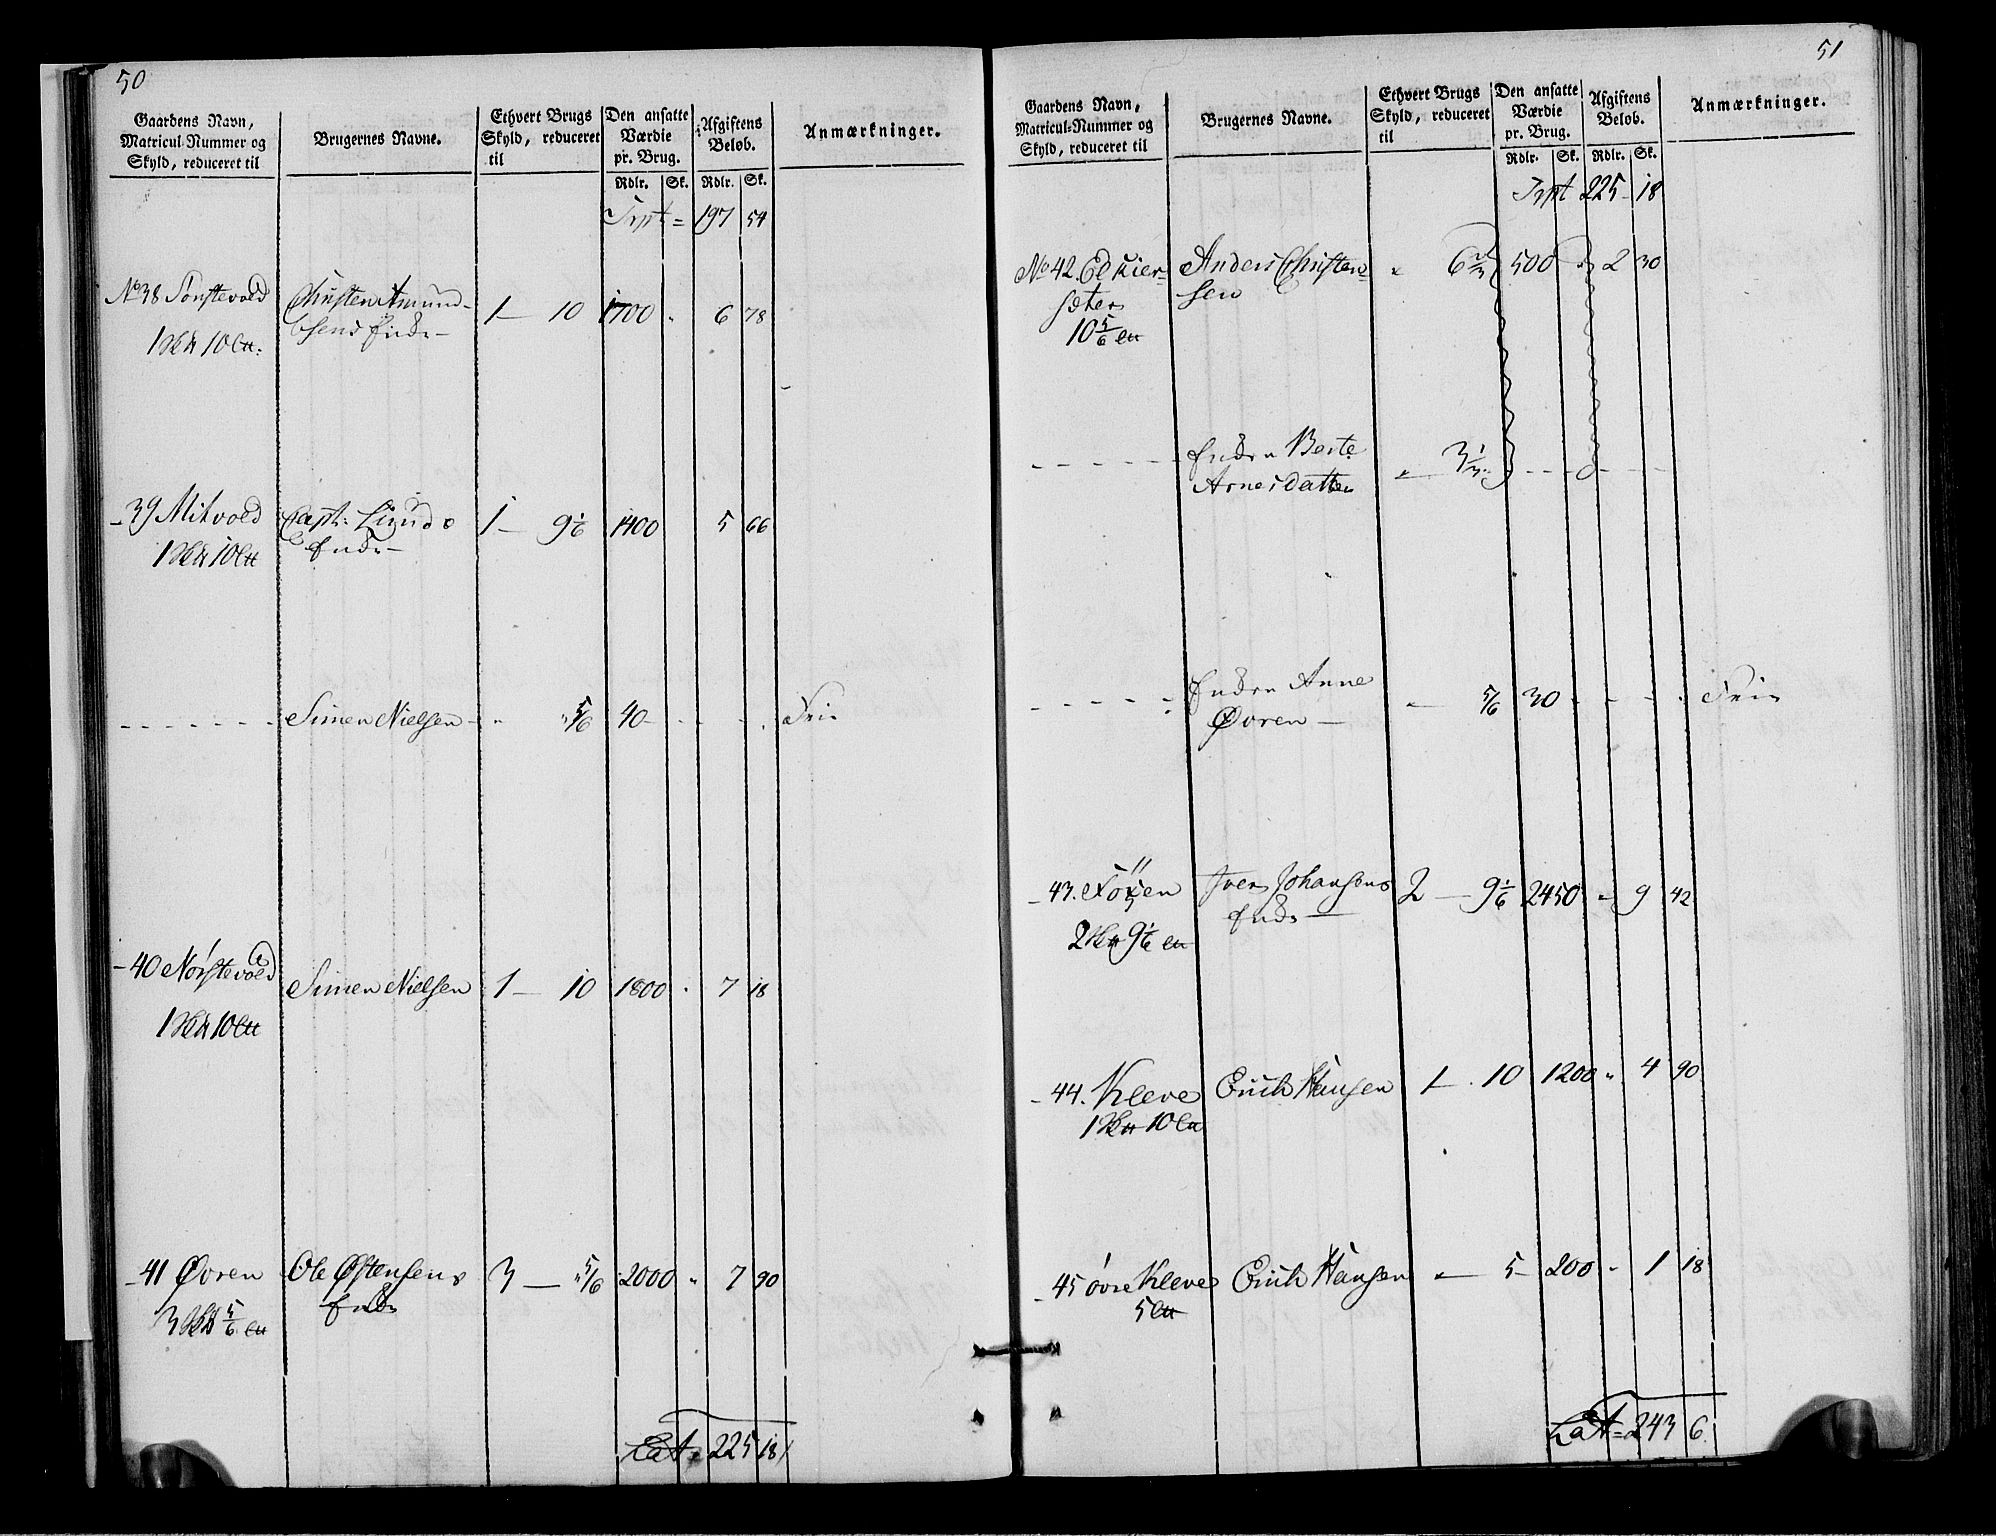 50
Gaardens Navn,
Matricul-Nummer og
Skyld, reduceret til
Brugernes Navne.
Ethvert Brugs
Skyld, reduceret
til
Den ansatte
Værdie
pr. Brug.
Afgiftens
Beløb.
Anmærkninger.
Rdlr. Sk. Rdlr. Sk.
Trpt = 197 54
No 38 Sønstevold Christen Amund- 1 — 10 1700 " 6 78
sens Enke —
39 Mitvold Capt: Lunds 1 — 9 1/6 1400 5 66
Enke —
Simen Nielsen — " " 5/6 40 Frie
40 Nørstevold Simen Nielsen 1 — 10 1800 " 7 18
41 Øvren Ole Østensens 3 — " 5/6 2000 " 7 90
Enke
Lat. 225 18
51
Gaardens Navn,
Matricul-Nummer og
Skyld, reduceret til
Brugernes Navne.
Ethvert Brugs
Skyld, reduceret
til
Den ansatte
Værdie
pr. Brug.
Afgiftens
Beløb.
Anmærkninger.
Rdlr. Sk. Rdlr. Sk.
Trpt 225 18
No 42. Anders Christen- " 6 2/3 500 2 30
sæter sen
10 5/6
Enken Berte " 3 1/3
Arnesdatter
Enken Anne 5/6 30 Frie
Øvren —
43. Iver Johansens 2 — 9 1/6 2450 " 9 42
Enke
44. Kleve Erich Hansen 1 — 10 1200 " 4 90
45 øvre Kleve Erich Hansen " — 5 — 200 " 1 18
Lat = 243 6